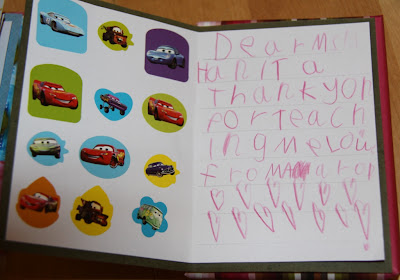 Dear Msh
Han it a
thank you
for teach
ing me lou
from